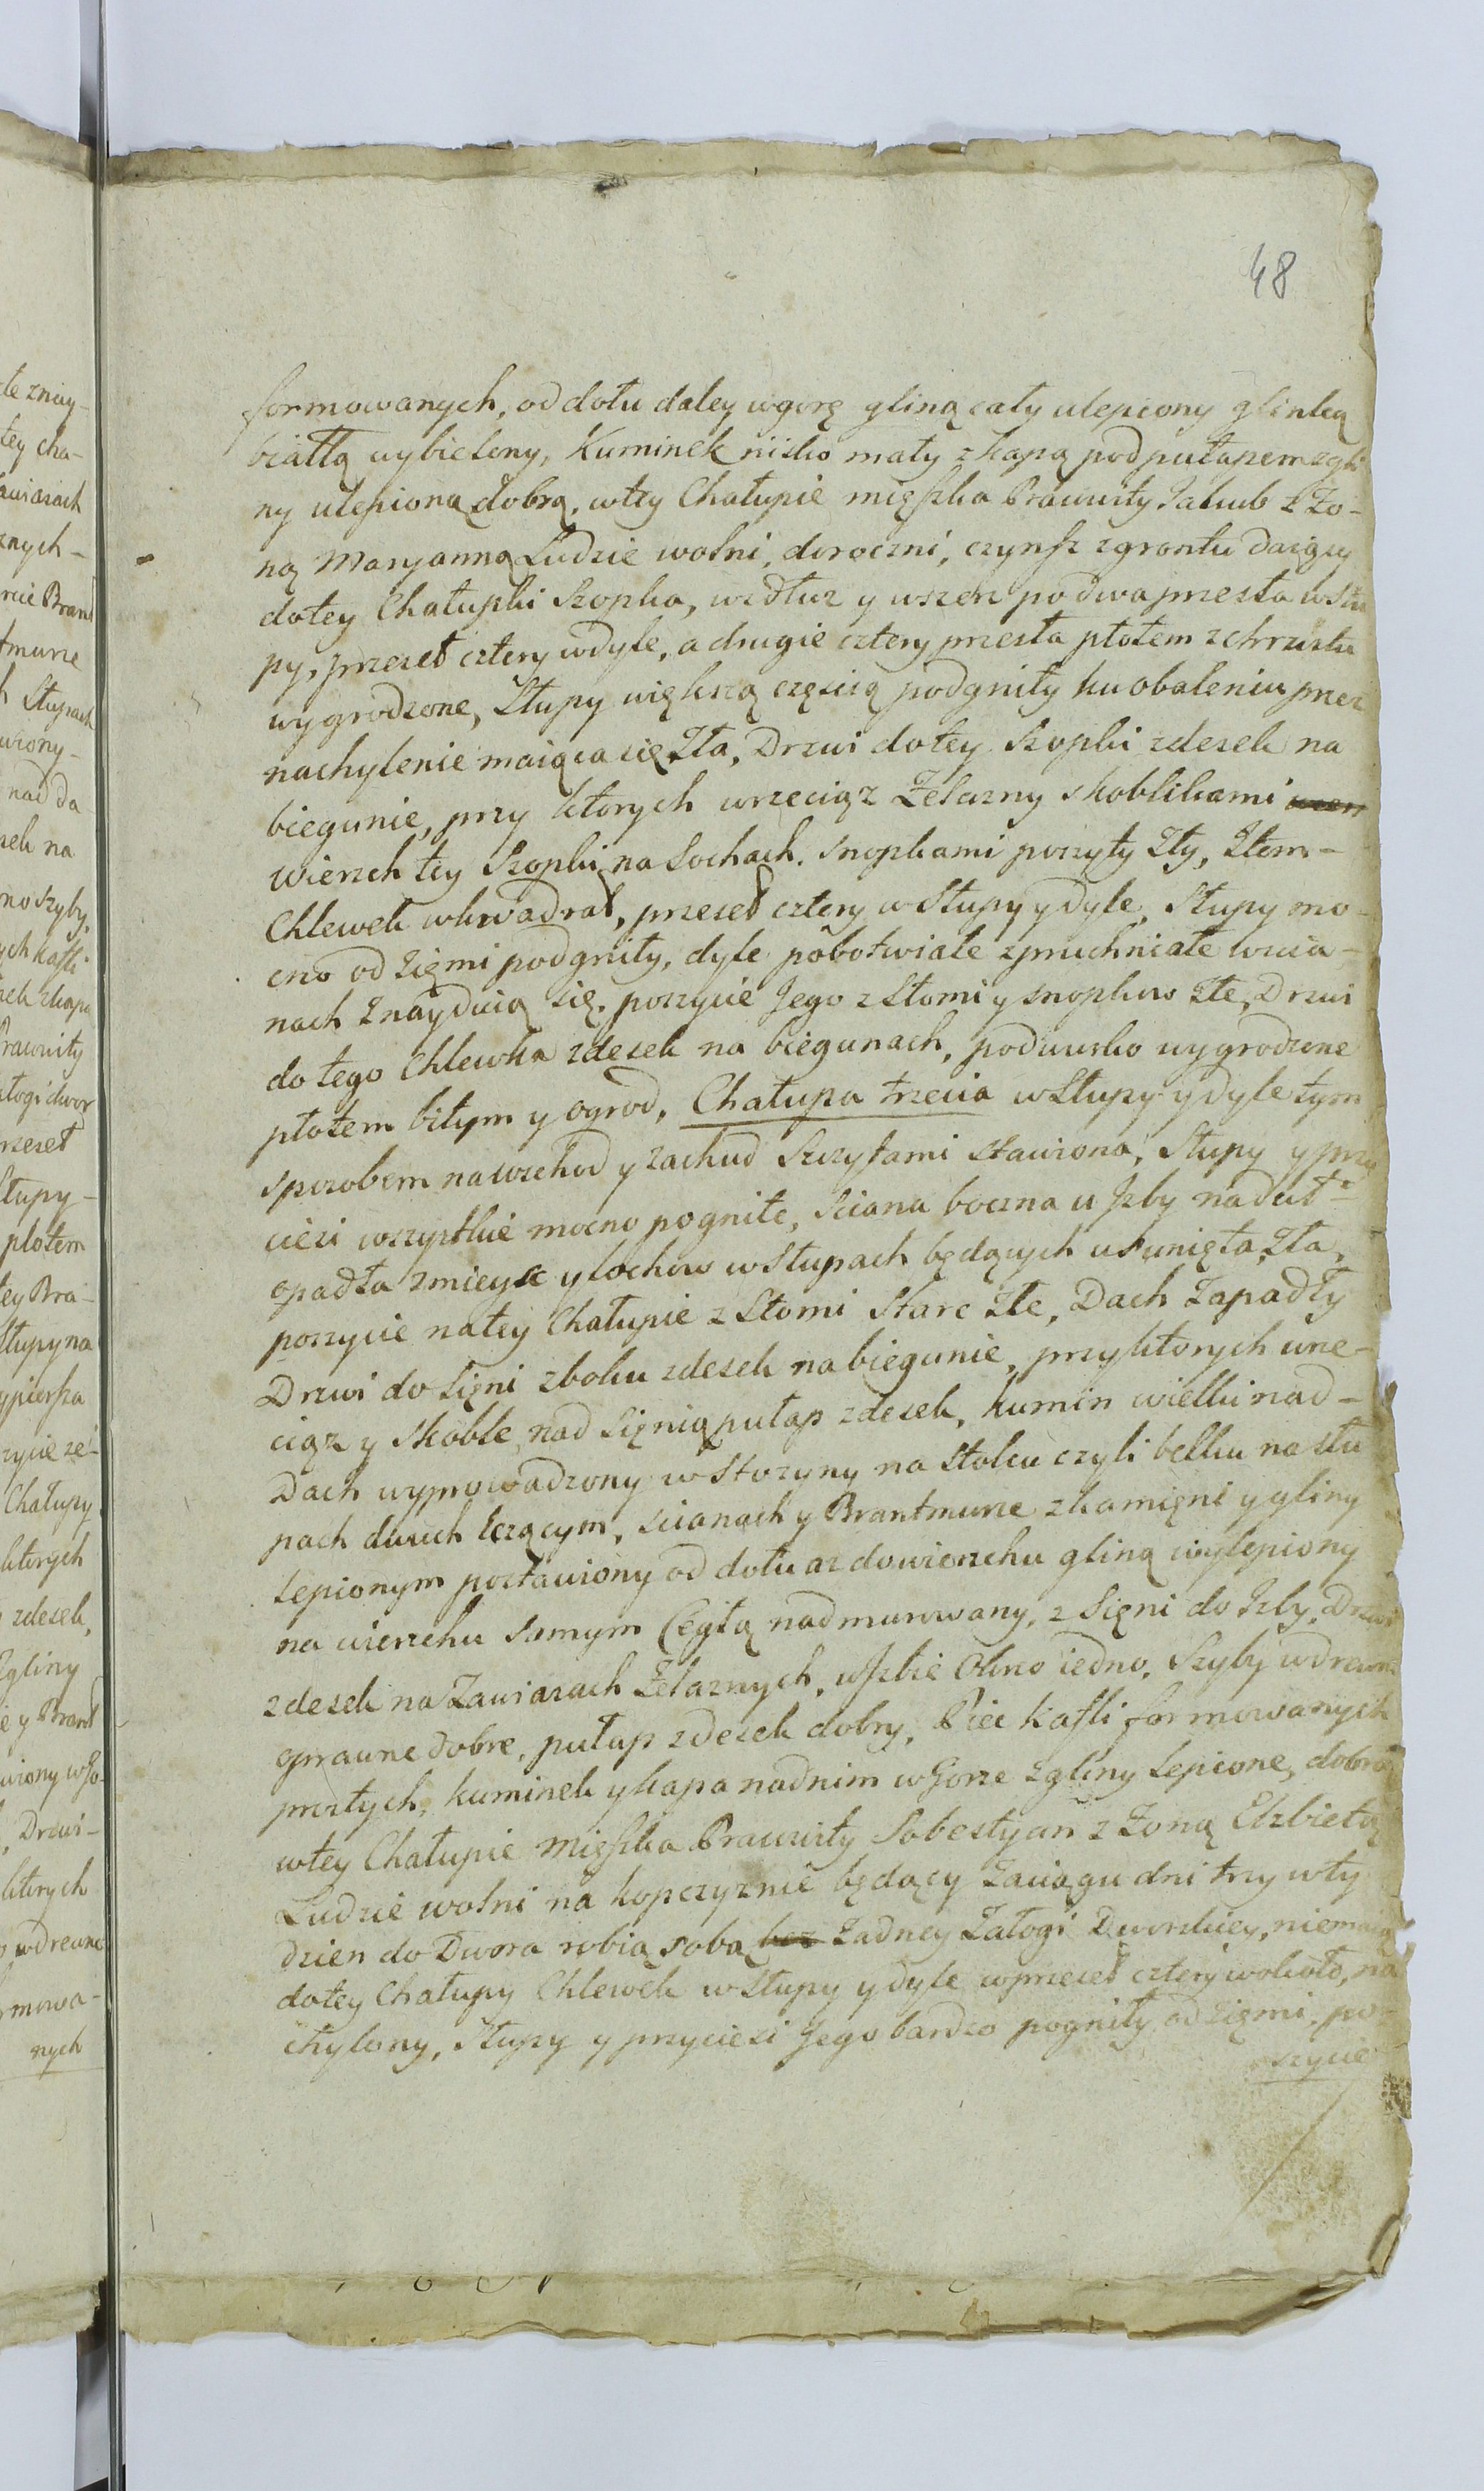 48
formowanych, od dołu daley wgorę gliną cały ulepiony glinką
białłą wybielony, Kuminek nisko mały z kapą pod pułapem zgli
ny ulepioną dobrą, wtey Chałupie mięszka Prawuły Jakub z Żo-
ną Maryanną Ludzie wolni, doroczni, czynsz zgrontu daiący
dotey Chałupki Szopka, wzdłuz y wszerz po dwa przesła wsłu
py, przeseł cztery wdyle, a drugie cztery przesła płotem z chrustu
wygrodzone, Słupy większą częscią podgniły ku obaleniu przez
nachylenie maiąca się Zła, Drzwi dotey Szopki zdesek na
biegunie, przy ktorych wrzeciąz Żelazny skoblikami
wierzch tey Szopki na Sochach snopkami poszyty Zły, Item-
Chlewek wkwadrat, przeseł cztery w Słupy y dyle, Słupy mo-
cno od Zięmi podgniły, dyle pobotwiałe zpruchniałe wscia-
nach Znayduią się. poszycie Jego z Słomi y snopkow złe, Drzwi
do tego Chlewka zdesek na biegunach, podwurko wygrodzone
płotem bitym y ogrod, Chałupa trzecia w Słupy y dyle tym
sposobem nawschod y zachud Szczytami stawiona, Słupy y przy
ciesi wszystkie mocno pogniłe, sciana boczna u Jzby
opadła zmieysc y lochow w Słupach będących usunięta, Zła,
poszycie natey Chałupie z Słomi Stare Złe, Dach Zapadły
Drzwi do Sięni zboku zdesek na biegunie, przyktorych wrze-
ciąz y Skoble, nad Sięnią pułap zdesek, kumin wielki nad-
Dach wyprowadzony w Storzyny na stolcu czyli belku na słu
pach dwuch łezącym, scianach y Brantmurze zkamięni y gliny
lepionym postawiony od dołu az dowierzchu gliną wylepiony
na wierzchu samym Cegłą nadmurowany, z Sięni do Jzby, Drzwi
zdesek na Zawiasach Żelaznych, wJzbie Okno iedno, Szyby wdrewno
oprawne dobre, pułap zdesek dobry, Piec kafli formowanych
prostych, kuminek y kapa nadnim wGorze zgliny lepione, dobre,
wtey Chałupie Mięszka Prawuły Sobestyan z Żoną Elzbietą
Ludzie wolni na kopczyznie będący Zaciągu dni trzy wty
dzien do Dwora robią sobą bez Zadney Załogi Dworskiey, niemaią
dotey Chałupy Chlewek w Słupy y dyle wprzeseł cztery wokoło, na
chylony, Słupy y przyciesi Jego bardzo pogniły od zięmi, po-
szycie